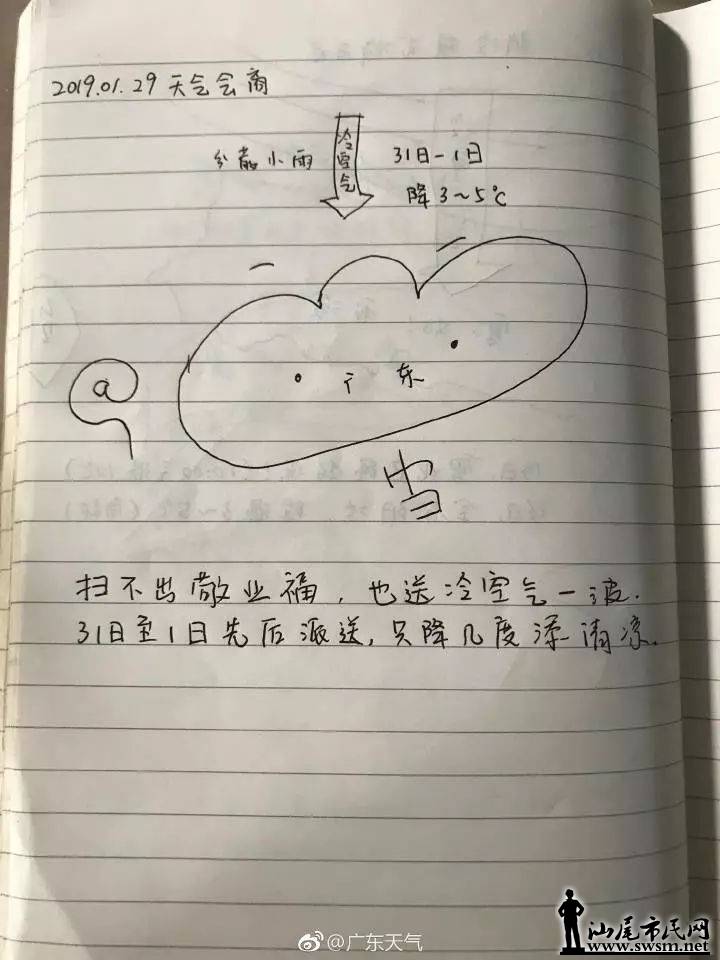 2019.01.29 天气会商
分散小雨
冷空气
31日-1日
降3~5℃
a
广东
扫不出敬业福，也送冷空气一波.
31日至1日先后派送，只降几度添清凉.
@广东天气
汕尾市民网
www.swsm.net